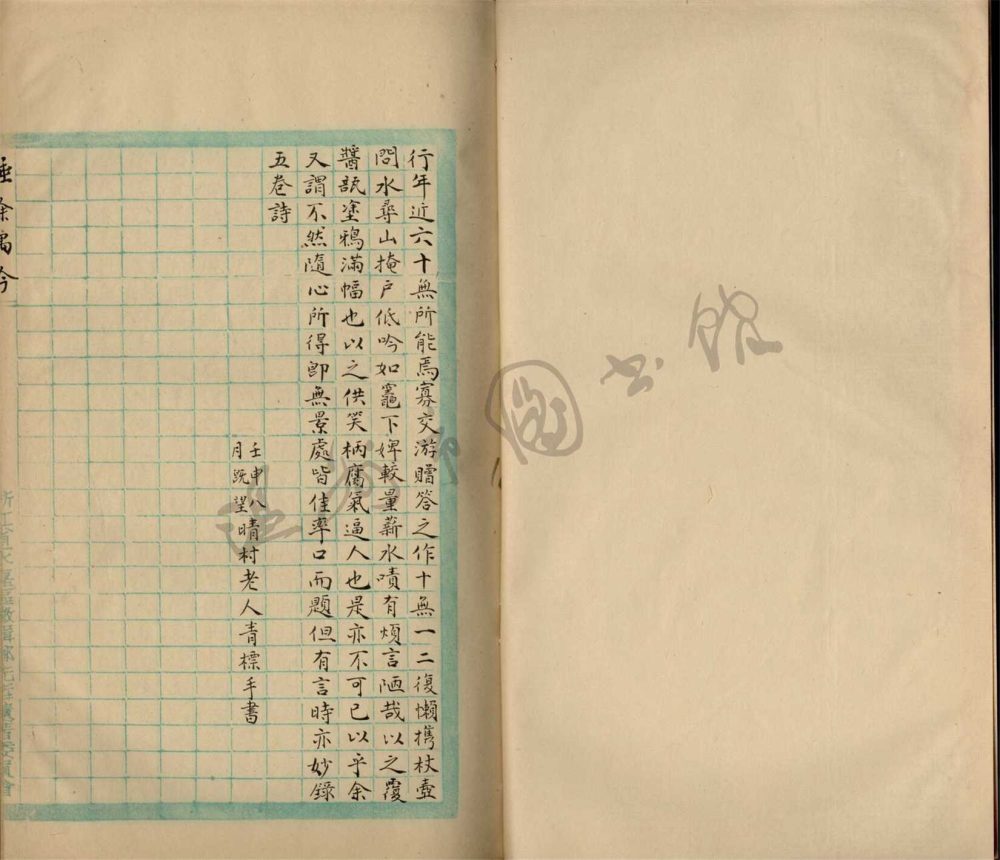 行年近六十無所能焉寡交游贈答之作十無一二復懶攜杖壺
問水尋山掩戶低吟如竈下婢較量薪水嘖有煩言陋哉以之覆
醬瓿塗鴉滿幅也以之供笑柄腐氣逼人也是亦不可已以乎余
又謂不然隨心所得即無景處皆佳率口而題但有言時亦妙錄
五卷詩
壬申八
月既望
晴村老人青標手書
圖書館